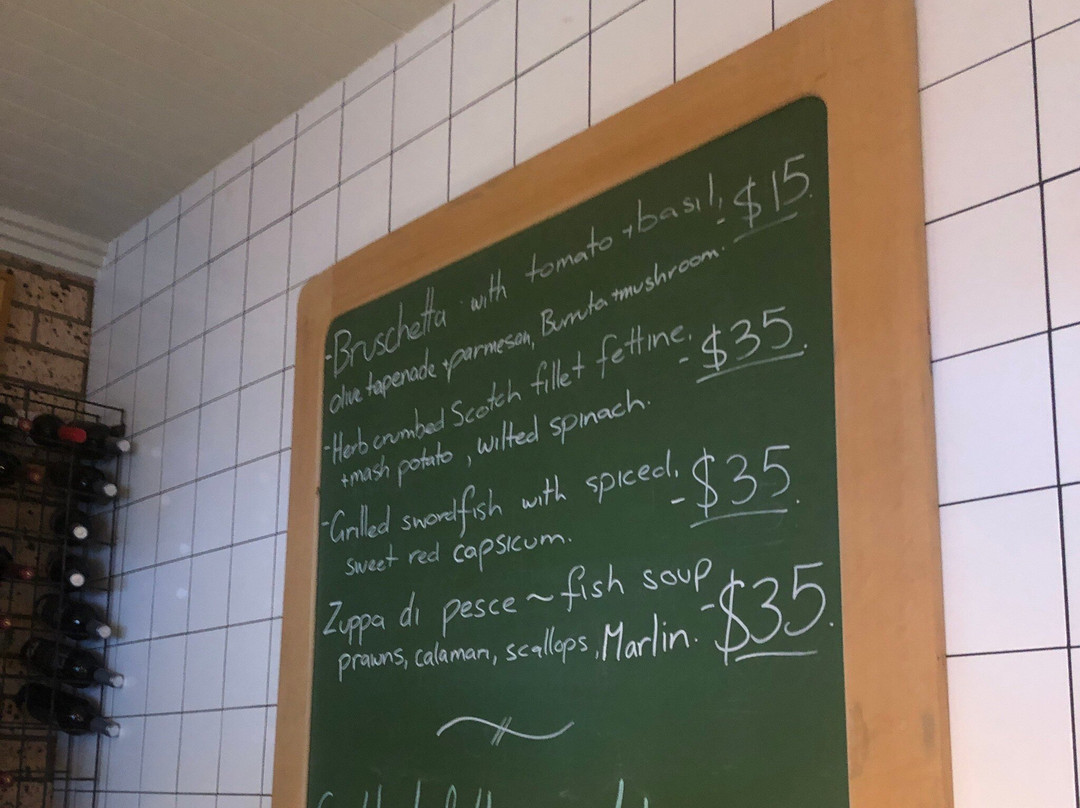 -Bruschetta with tomato + basil, - $15.
olive tapenade + parmesan, Burruta + mushroom.
-Herb crumbed Scotch fillet fettine, - $35.
+ mash potato, wilted spinach.
-Grilled swordfish with spiced, - $35.
sweet red capsicum.
Zuppa di pesce ~ fish soup - $35.
prawns, calamari, scallops, Marlin.